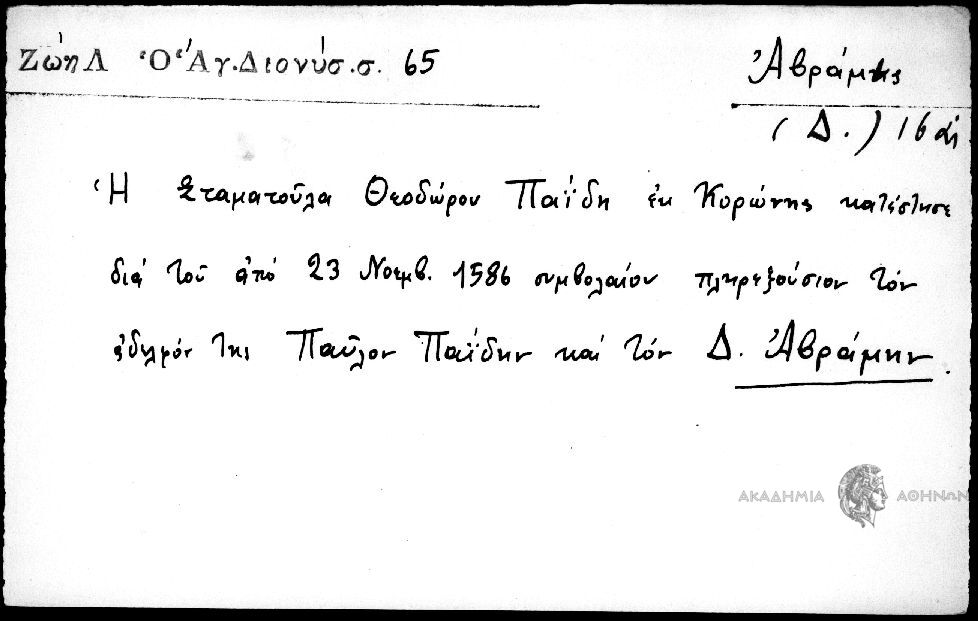 Ζώη Λ Ὁ Ἅγ. Διονύσ. σ. 65
Ἀβράμης
(Δ.) 16 αἰ
Ἡ Σταματοῦλα Θεοδώρου Παΐδη ἐκ Κορώνης κατέστησε
διά τοῦ ἀπό 23 Νοεμβ. 1586 συμβολαίου πληρεξούσιον τόν
ἀδελφόν της Παῦλον Παΐδην καί τόν Δ. Ἀβράμην.
ΑΚΑΔΗΜΙΑ ΑΘΗΝΩΝ